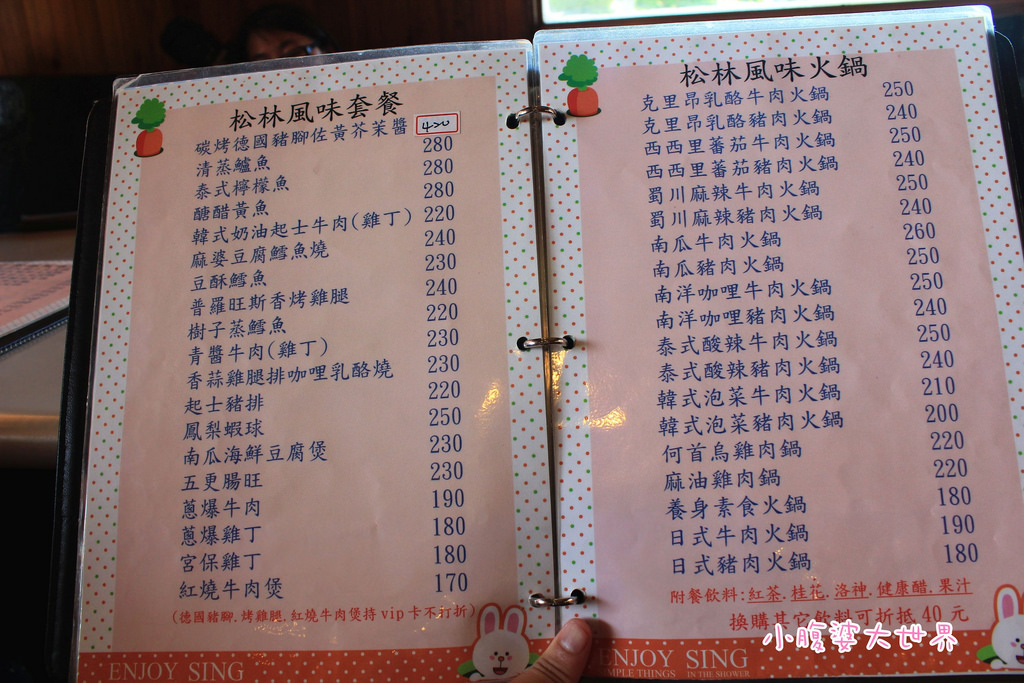 松林風味套餐
碳烤德國豬腳佐黃芥茉醬 420
清蒸鱸魚 280
泰式檸檬魚 280
醣醋黃魚 280
韓式奶油起士牛肉(雞丁) 220
麻婆豆腐鱈魚燒 240
豆酥鱈魚 230
普羅旺斯香烤雞腿 240
樹子蒸鱈魚 220
青醬牛肉(雞丁) 230
香蒜雞腿排咖哩乳酪燒 230
起士豬排 220
鳳梨蝦球 250
南瓜海鮮豆腐煲 230
五更腸旺 230
蔥爆牛肉 190
蔥爆雞丁 180
宮保雞丁 180
紅燒牛肉煲 170
(德國豬腳.烤雞腿.紅燒牛肉煲持vip卡不打折)
ENJOY SING
松林風味火鍋
克里昂乳酪牛肉火鍋 250
克里昂乳酪豬肉火鍋 240
西西里蕃茄牛肉火鍋 250
西西里蕃茄豬肉火鍋 240
蜀川麻辣牛肉火鍋 250
蜀川麻辣豬肉火鍋 240
南瓜牛肉火鍋 260
南瓜豬肉火鍋 250
南洋咖哩牛肉火鍋 250
南洋咖哩豬肉火鍋 240
泰式酸辣牛肉火鍋 250
泰式酸辣豬肉火鍋 240
韓式泡菜牛肉火鍋 210
韓式泡菜豬肉火鍋 200
何首烏雞肉鍋 220
麻油雞肉鍋 220
養身素食火鍋 180
日式牛肉火鍋 190
日式豬肉火鍋 180
附餐飲料:紅茶.桂花.洛神.健康醋.果汁
換購其它飲料可折抵40元
小腹婆大世界
ENJOY SING
SIMPLE THINGS IN THE SHOWER